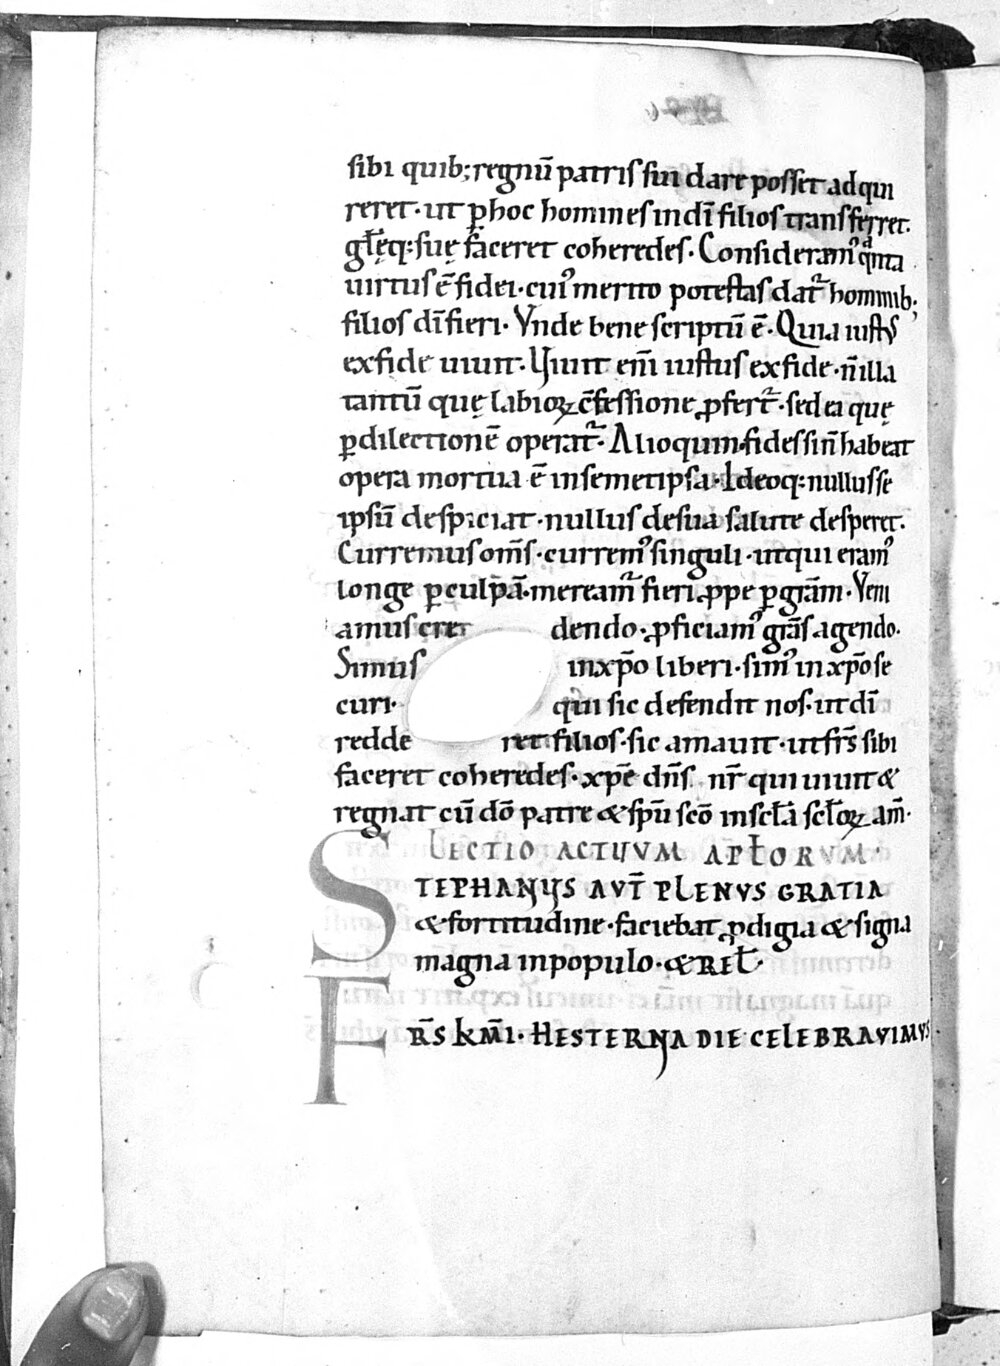 sibi quib; regnū patris sui dare posset adqui
reret · ut ꝑhoc homines in dī filios transferret.
glę̄q: suę faceret coheredes. Considerem᷒ qͣnta
uirtus ē fidei · cui᷒ merito potestas dat᷑ hominib;
filios dī fieri. Vnde bene scriptū ē. Quia iustus
ex fide uiuit. Viuit enī iustus ex fide · ñ illa
tantū quę labioꝝ c̄fessione ꝓfert᷑ · sed ea quę
ꝑ dilectionē operat᷑. Alioquin fides si ñ habeat
opera mortua ē in semetipsa. Ideoq: nullus se
ipsū despiciat · nullus de sua salute desperet.
Curremus om̄s · currem᷒ singuli · ut qui eram᷒
longe ꝑ culpā · meream᷑ fieri ꝓpe ꝑ grām. Veni
amus cre dendo · ꝓficiam᷒ grās agendo.
Simus in xp̄o liberi · sim᷒ in xp̄o se
curi · qui sic defendit nos · ut dī
redde ret filios · sic amauit · ut frs̄ sibi
faceret coheredes. xpē dn̄s nr̄ qui uiuit &
regnat cū dō patre & spū scō in sclā scloꝝ am̄.
LECTIO ACTUVM APŁORVM.
STEPHANUS AUT̄ PLENVS GRATIA
& fortitudine · faciebat ꝓdigia & signa
magna in populo · & REŁ
FRS̄ KM̄I. HESTERNA DIE CELEBRAVIMVS.